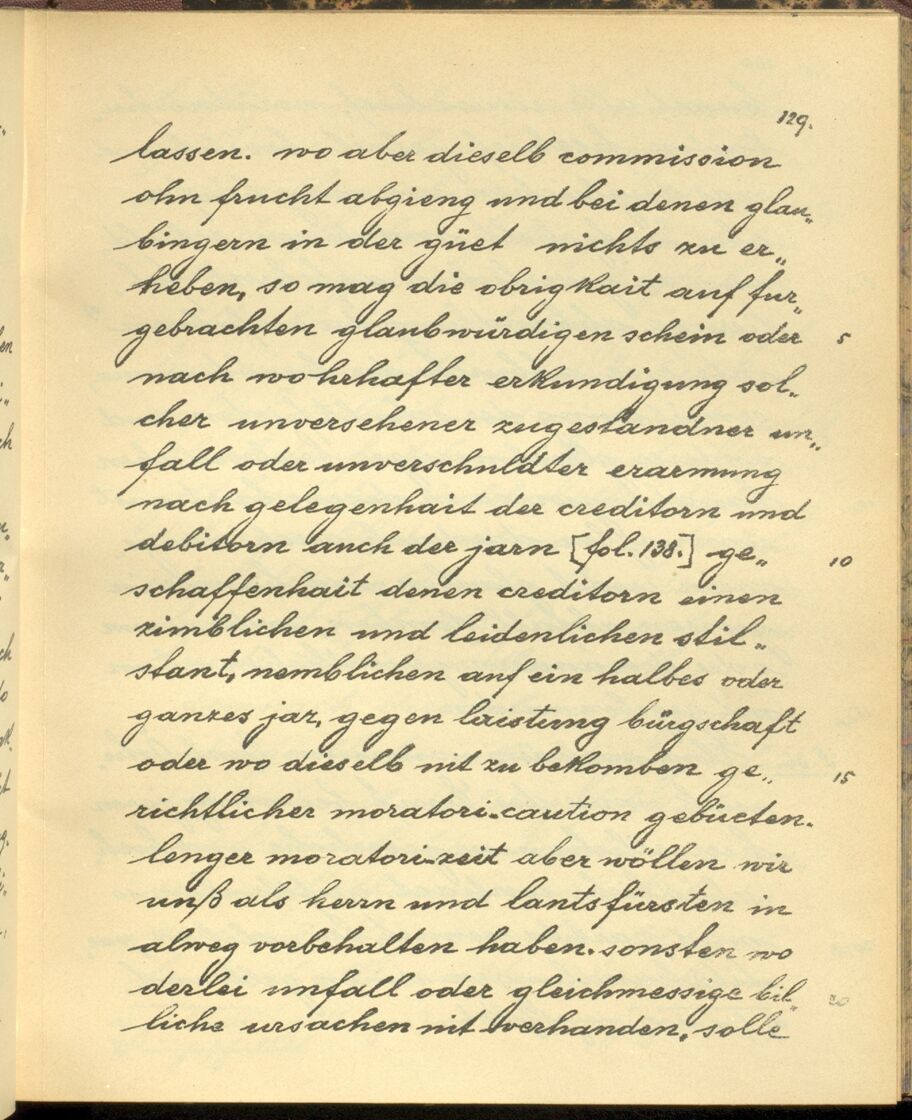 129.
lassen. wo aber dieselb commission
ohn frucht abgieng und bei denen glau„
bingern in der güet nichts zu er„
heben, so mag die obrigkait auf fur„
gebrachten glaubwürdigen schein oder 5
nach wohrhafter erkundigung sol„
cher unversehener zugestandner un„
fall oder unverschuldter erarmung
nach gelegenhait der creditorn und
debitorn auch der jarn [fol. 138.] ge„ 10
schaffenhait denen creditorn einen
zimblichen und leidenlichen stil„
stant, nemblichen auf ein halbes oder
ganzes jar, gegen laistung bürgschaft
oder wo dieselb nit zu bekomben ge„ 15
richtlicher moratori-caution gebüeten.
lenger moratori-zeit aber wöllen wir
unß als herrn und lantsfürsten in
alweg vorbehalten haben. sonsten wo
derlei unfall oder gleichmessige bil„ 20
liche ursachen nit verhanden, solle